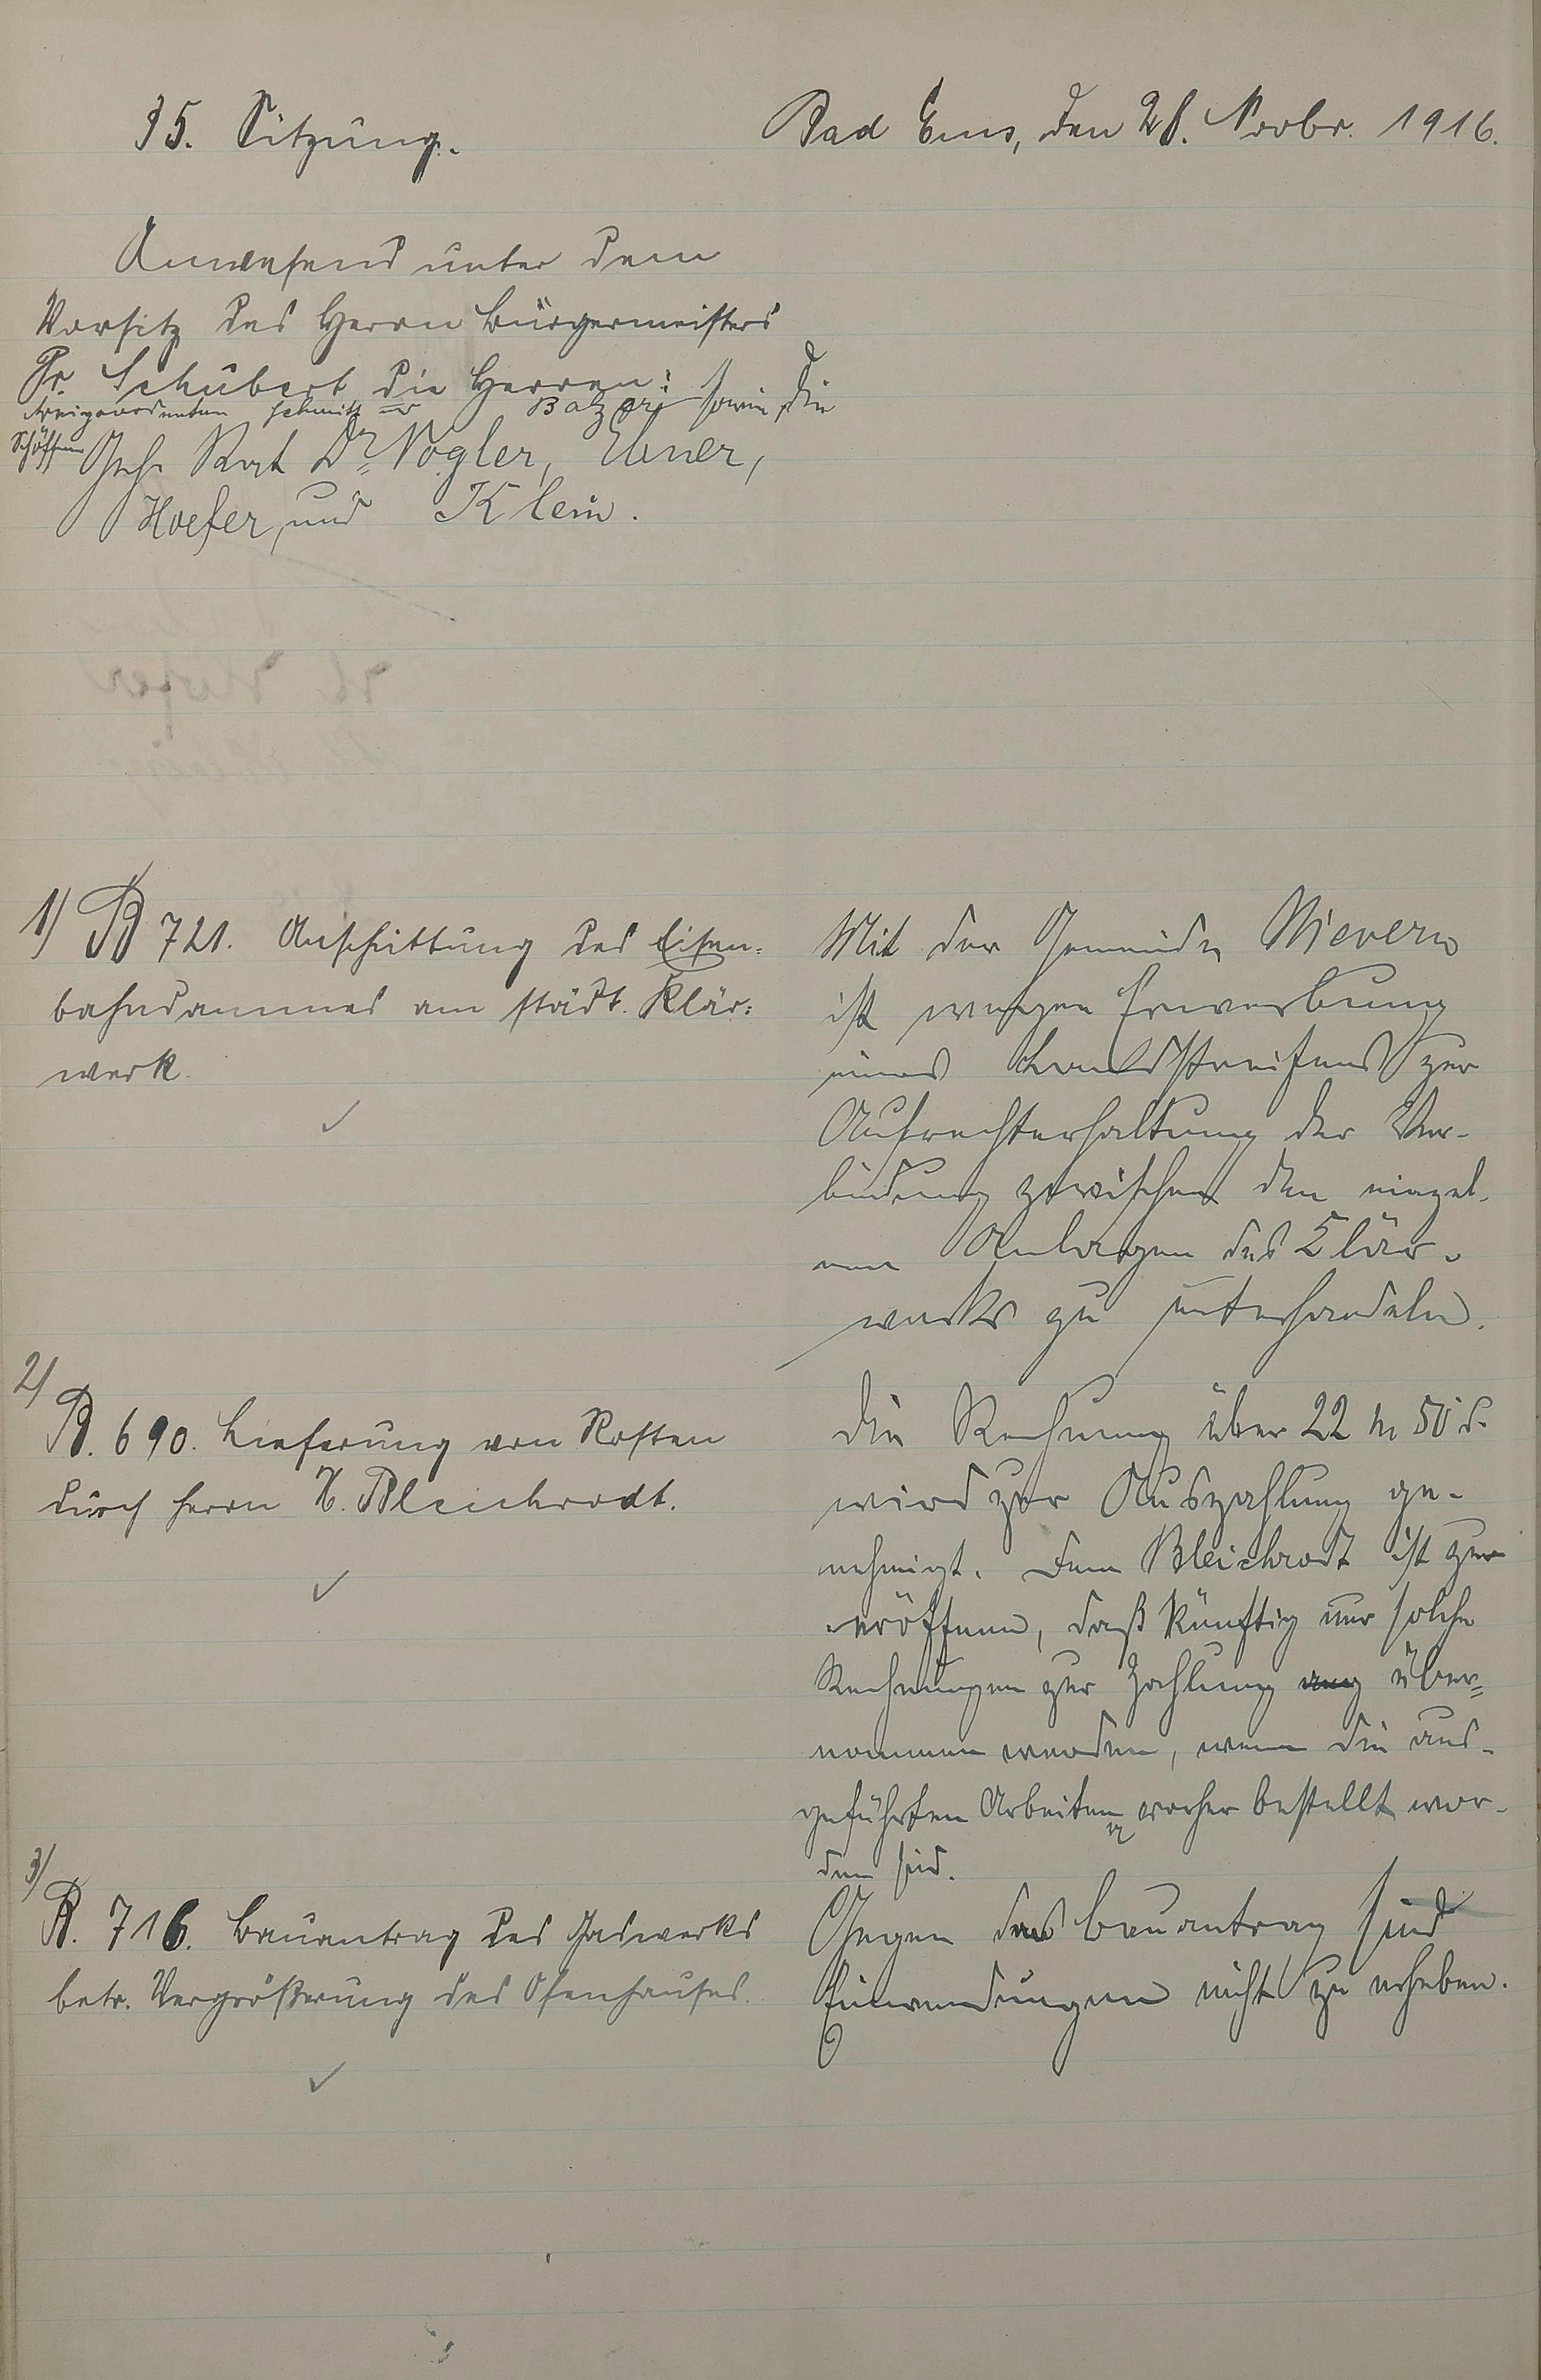 35. Sitzung.
Bad Ems, den 28. Novbr. 1916.
Anwesend unter dem
Vorsitz des Herrn Bürgermeisters
Dr. Schubert die Herren:
Beigeordneten Schmitt u Balzer, sowie die
Schöffen Geh. Rat Dr. Vogler, Ebner,
Hoefer, und Klein.
1) B 721. Anschüttung des Eisen-
bahndammes am städt. Klär-
werk.
Mit der Gemeinde Nievern
ist wegen Erwerbung
eines Landstreifens zur
Aufrechterhaltung der Ver-
bindung zwischen den einzel-
nen Anlagen des Klär-
werks zu unterhandeln.
2)
B. 690. Lieferung von Rosten
durch Herrn H. Bleichrodt.
Die Rechnung über 22 M 50 d.
wird zur Auszahlung ge-
nehmigt. Dem Bleichrodt ist zu
eröffnen, daß künftig nur solche
Rechnungen zur Zahlung über-
nommen werden, wenn die aus-
geführten Arbeiten vorher bestellt wor-
den sind.
3)
B. 716. Bauantrag des Gaswerks
betr. Vergrößerung des Ofenhauses.
Gegen den Bauantrag sind
Einwendungen nicht zu erheben.